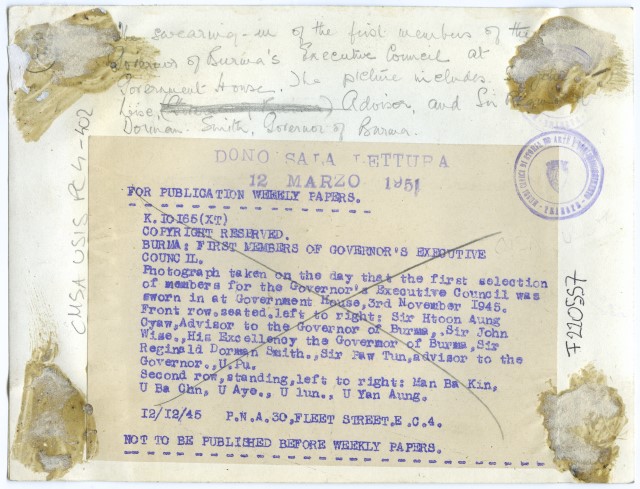 The swearing-in of the first members of the
Governor of Burma's Executive Council at
Government House. The picture includes
Wise, Advisor, and Sir
Dorman-Smith, Governor of Burma.
DONO SALA LETTURA
12 MARZO 1951
FOR PUBLICATION WEEKLY PAPERS.
K.10165(XT)
COPYRIGHT RESERVED.
BURMA: FIRST MEMBERS OF GOVERNOR'S EXECUTIVE
COUNCIL.
Photograph taken on the day that the first selection
of members for the Governor's Executive Council was
sworn in at Government House, 3rd November 1945.
Front row, seated, left to right: Sir Htoon Aung
Gyaw, Advisor to the Governor of Burma., Sir John
Wise., His Excellency the Governor of Burma, Sir
Reginald Dorman Smith., Sir Paw Tun, advisor to the
Governor., U.Pu.
Second row, standing, left to right: Man Ba Kin,
U Ba On, U Aye., U Lun., U Yan Aung.
12/12/45 P.N.A. 30, FLEET STREET, E.C.4.
NOT TO BE PUBLISHED BEFORE WEEKLY PAPERS.
CMSA USIS PC 4-402
F220557